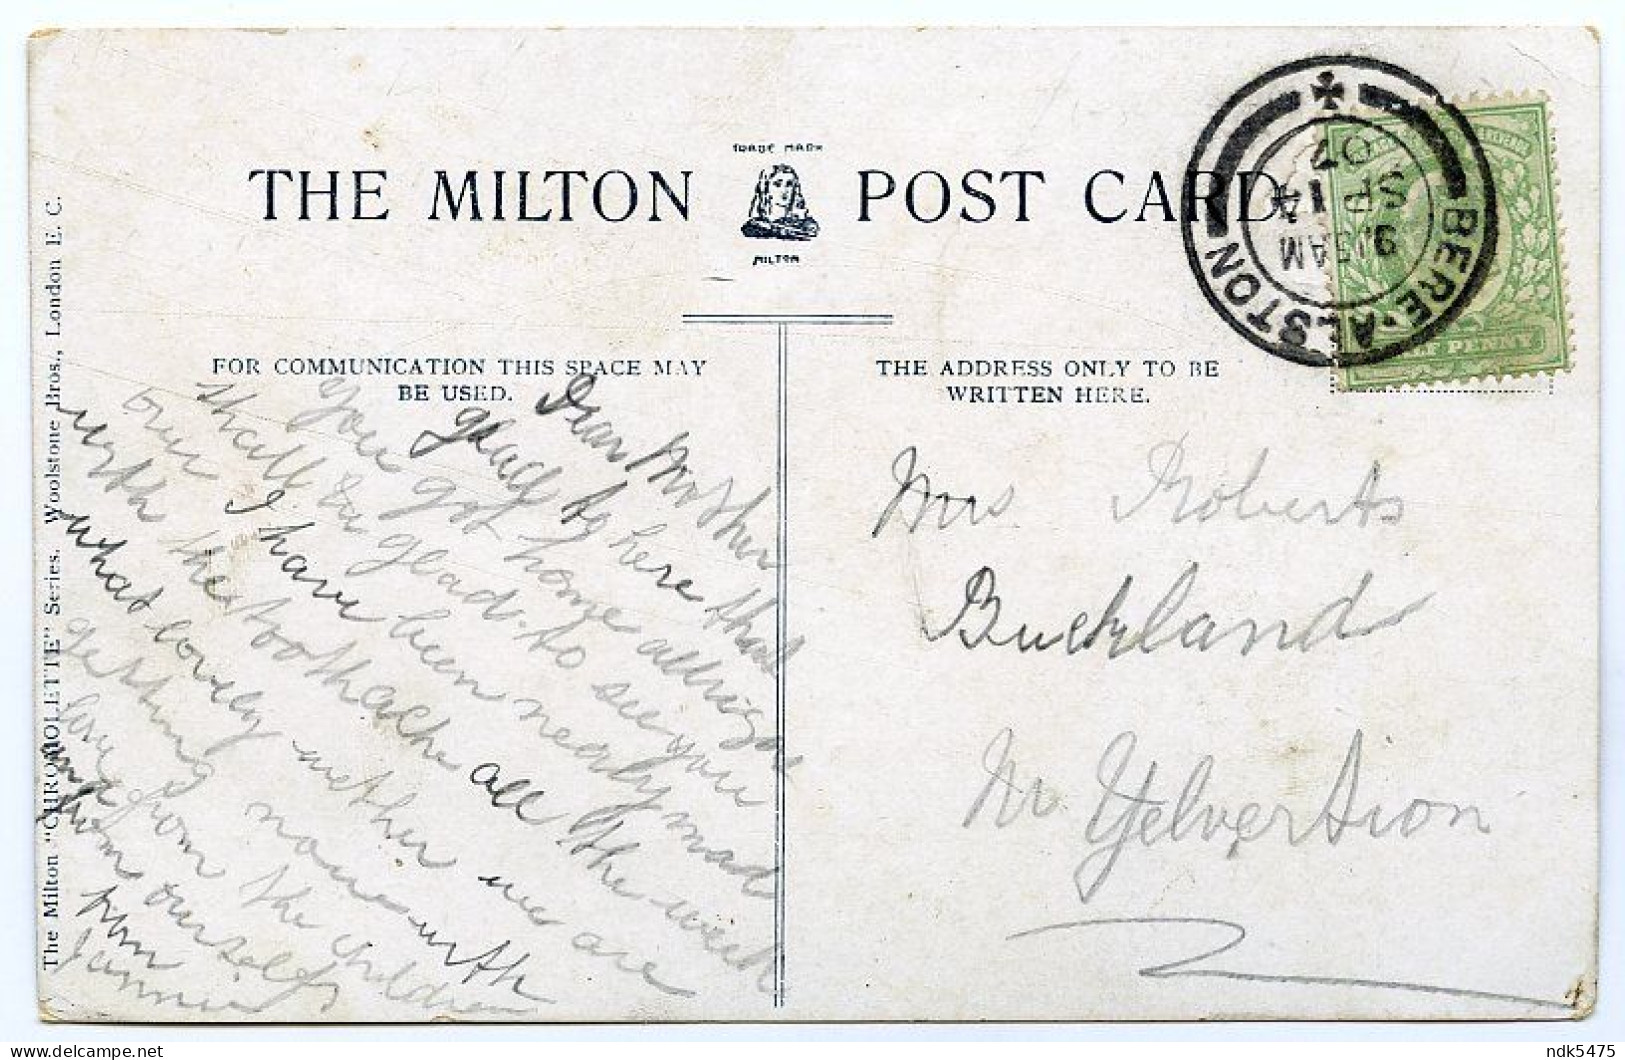 TRADE MARK
THE MILTON POST CARD
MILTON
BERE·ALSTON
9.15AM
SP 14
07
HALF PENNY
FOR COMMUNICATION THIS SPACE MAY
BE USED.
THE ADDRESS ONLY TO BE
WRITTEN HERE.
Dear Mother
glad to here that
you got home allright
shall be glad to see you
over I have been nearly mad
with the toothache all the week
what lovely wether we are
getting now with
love from the children
and from ourselfs
from
Jannie
Mrs Roberts
Buckland
Nr Yelvertion
The Milton "CHROMOLETTE" Series. Woolstone Bros., London E. C.
ndk5475